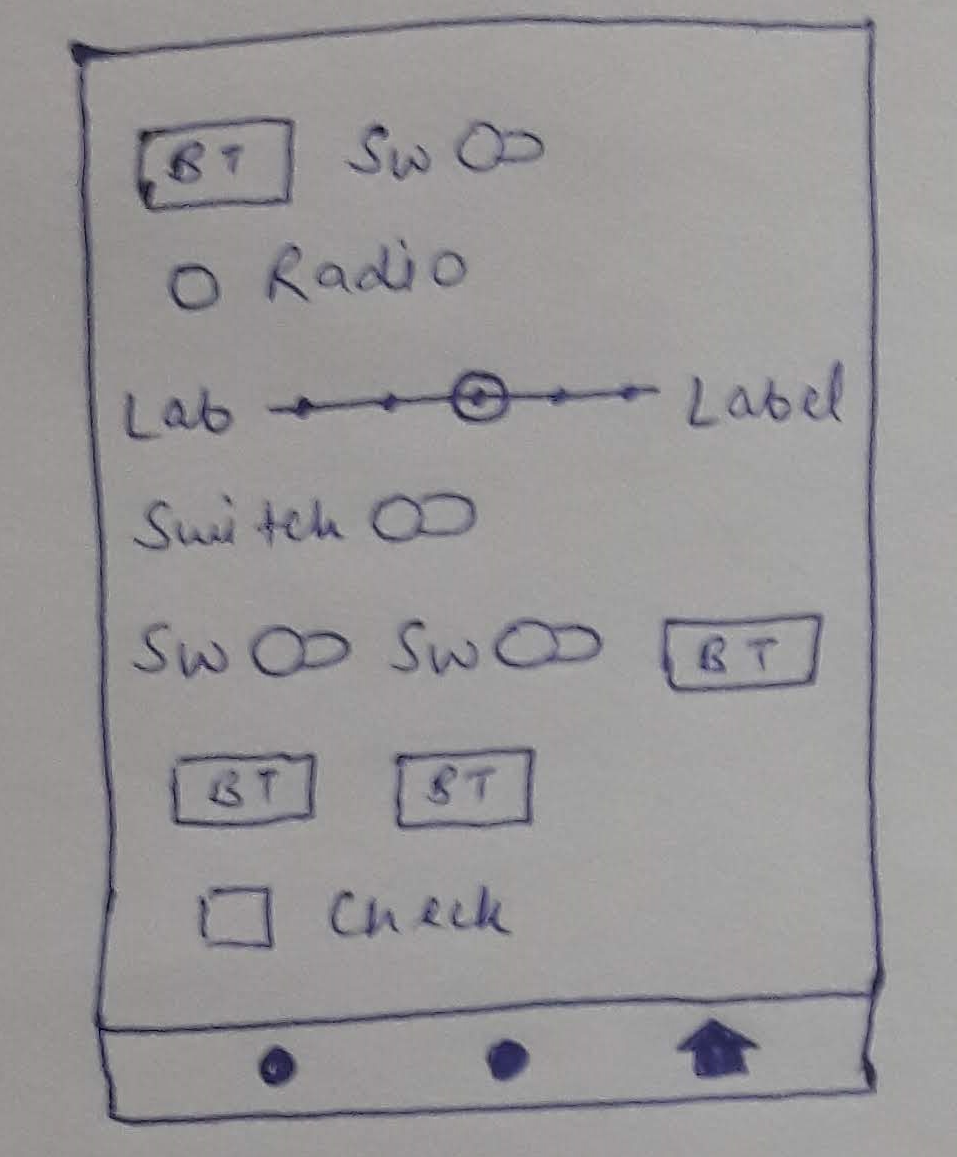 BT Sw
Radio
Lab Label
Switch
Sw Sw BT
BT BT
Check